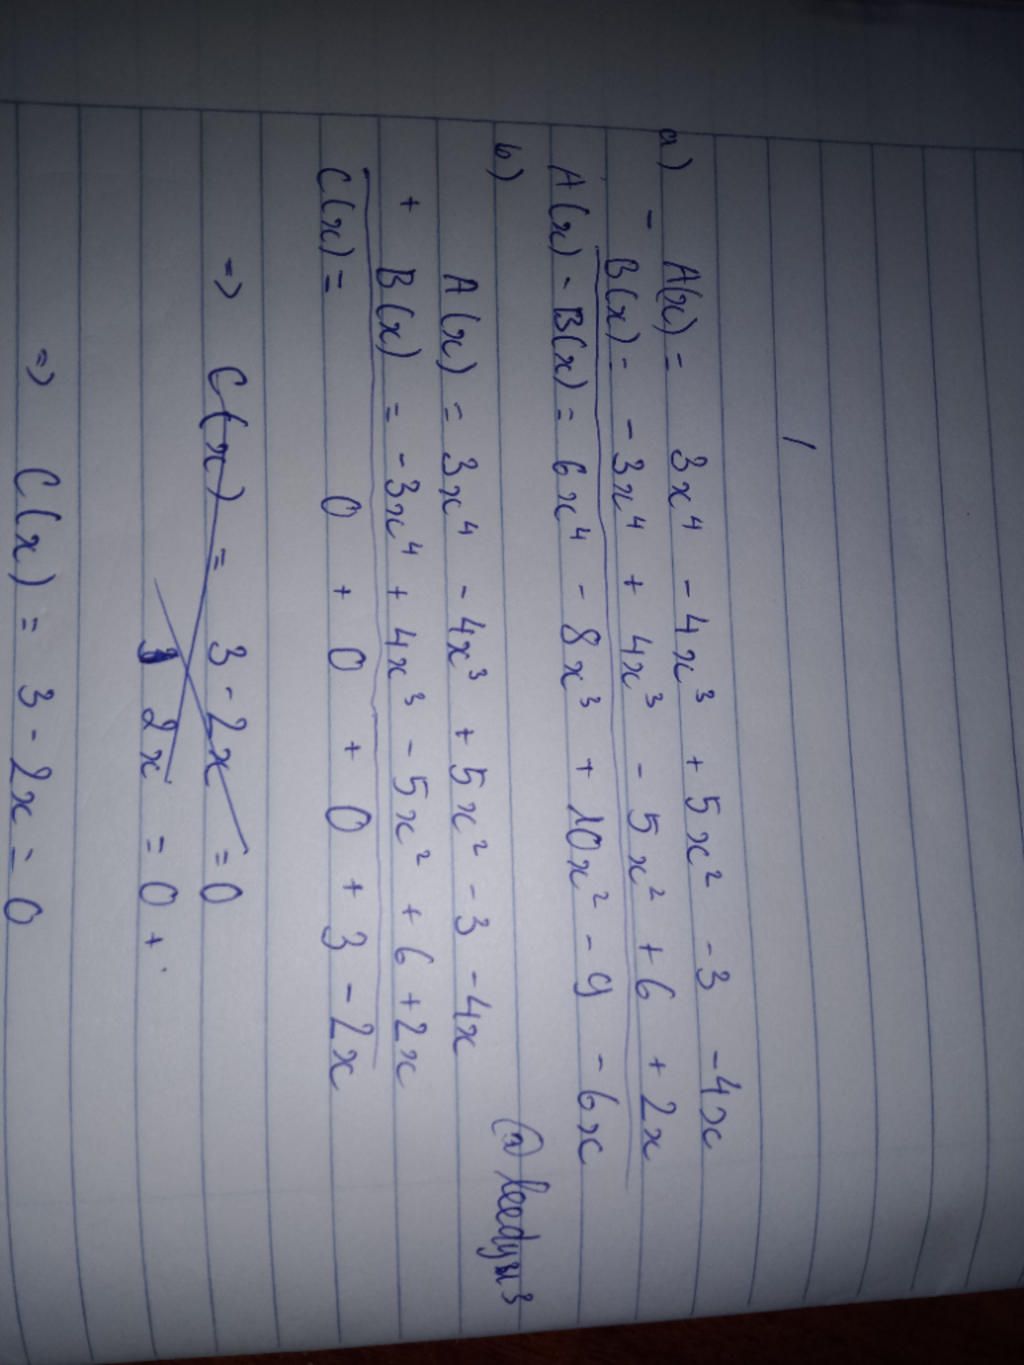 a) A(x) = 3x⁴ - 4x³ + 5x² - 3 - 4x
- B(x) = -3x⁴ + 4x³ - 5x² + 6 + 2x
A(x) - B(x) = 6x⁴ - 8x³ + 10x² - 9 - 6x
b)
A(x) = 3x⁴ - 4x³ + 5x² - 3 - 4x
+ B(x) = -3x⁴ + 4x³ - 5x² + 6 + 2x
C(x) = 0 + 0 + 0 + 3 - 2x
=> C(x) = 3 - 2x = 0
3 2x = 0 +
=> C(x) = 3 - 2x = 0